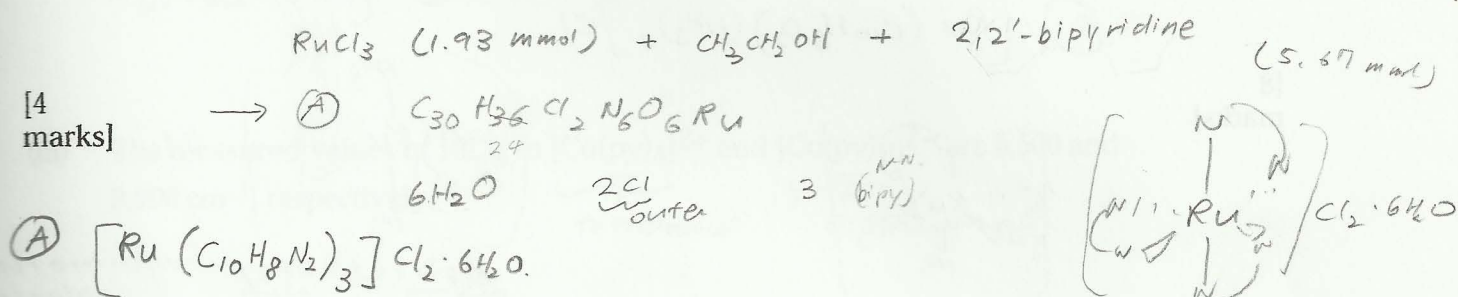 RuCl3 (1.93 mmol) + CH3CH2OH + 2,2'-bipyridine (5.67 mmol)
[4 marks]
→ Ⓐ C30 H36 Cl2 N6 O6 Ru
24
6H2O 2Cl outer 3 (bipy) N-N
Ⓐ [Ru (C10H8N2)3] Cl2 · 6H2O.
[N N N Ru N N N] Cl2 · 6H2O